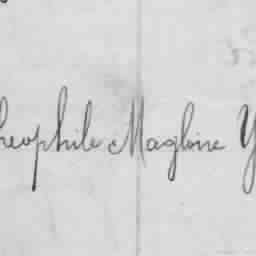 heophile Magloire Y